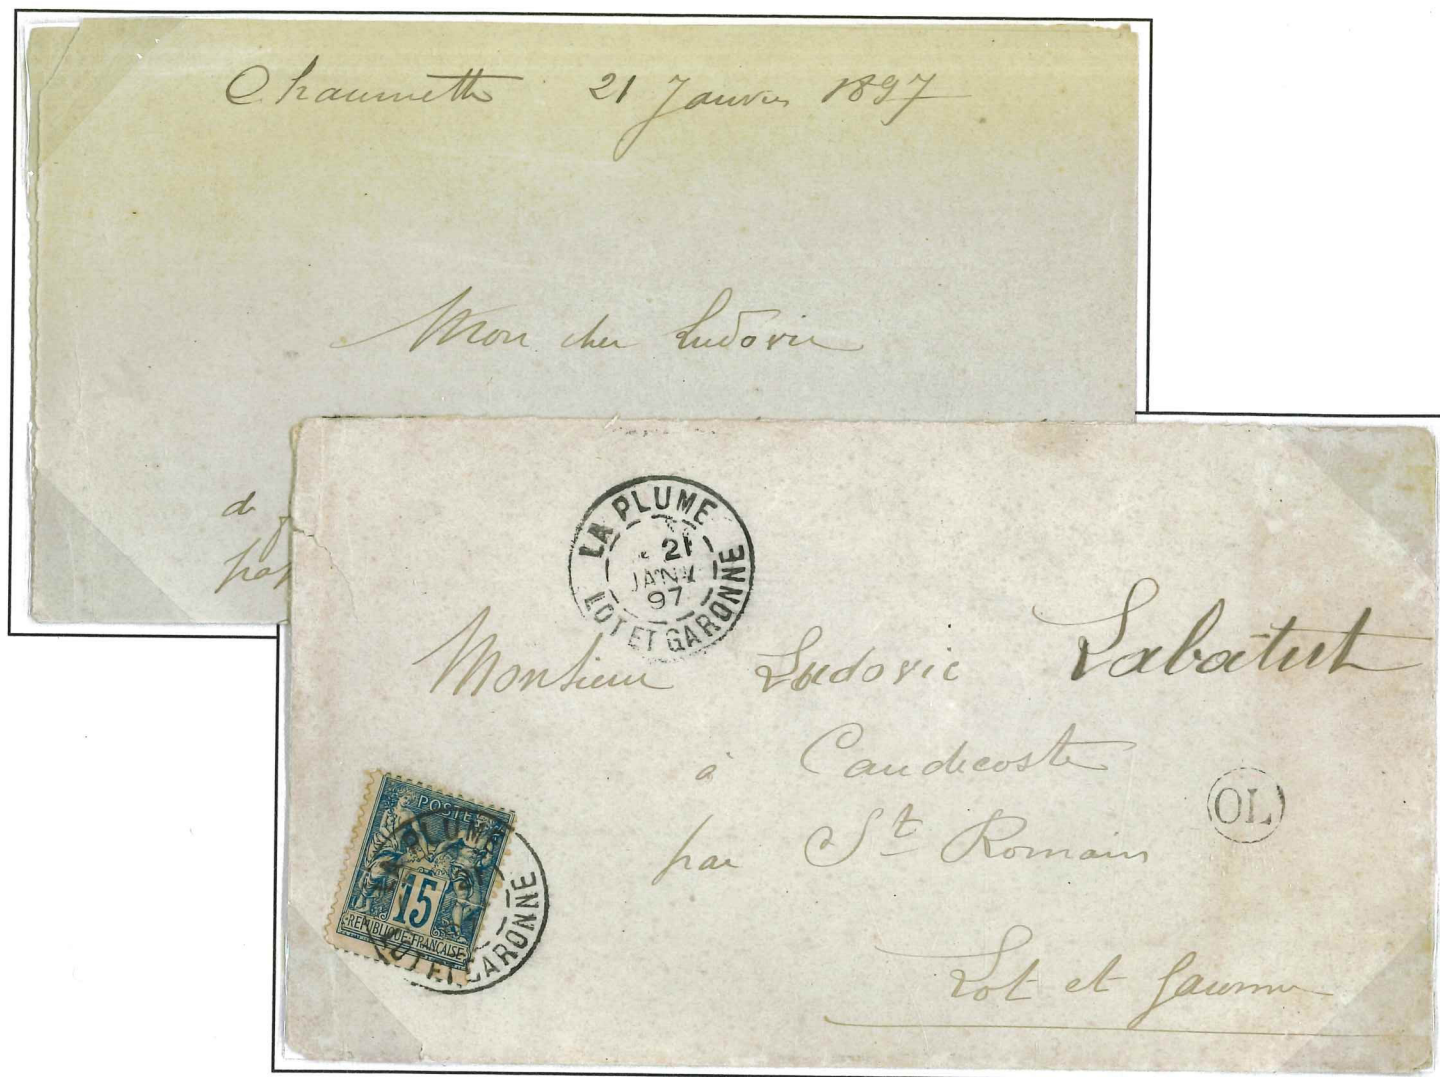 Chaumette 21 Janvier 1897
Mon cher Ludovic
de
LA PLUME
21
JANV
97
LOT ET GARONNE
Monsieur Ludovic Labatut
à Caudecoste
par St Romain
Lot et Garonne
OL
POSTES
15
REPUBLIQUE FRANÇAISE
LA PLUME
21
LOT ET GARONNE